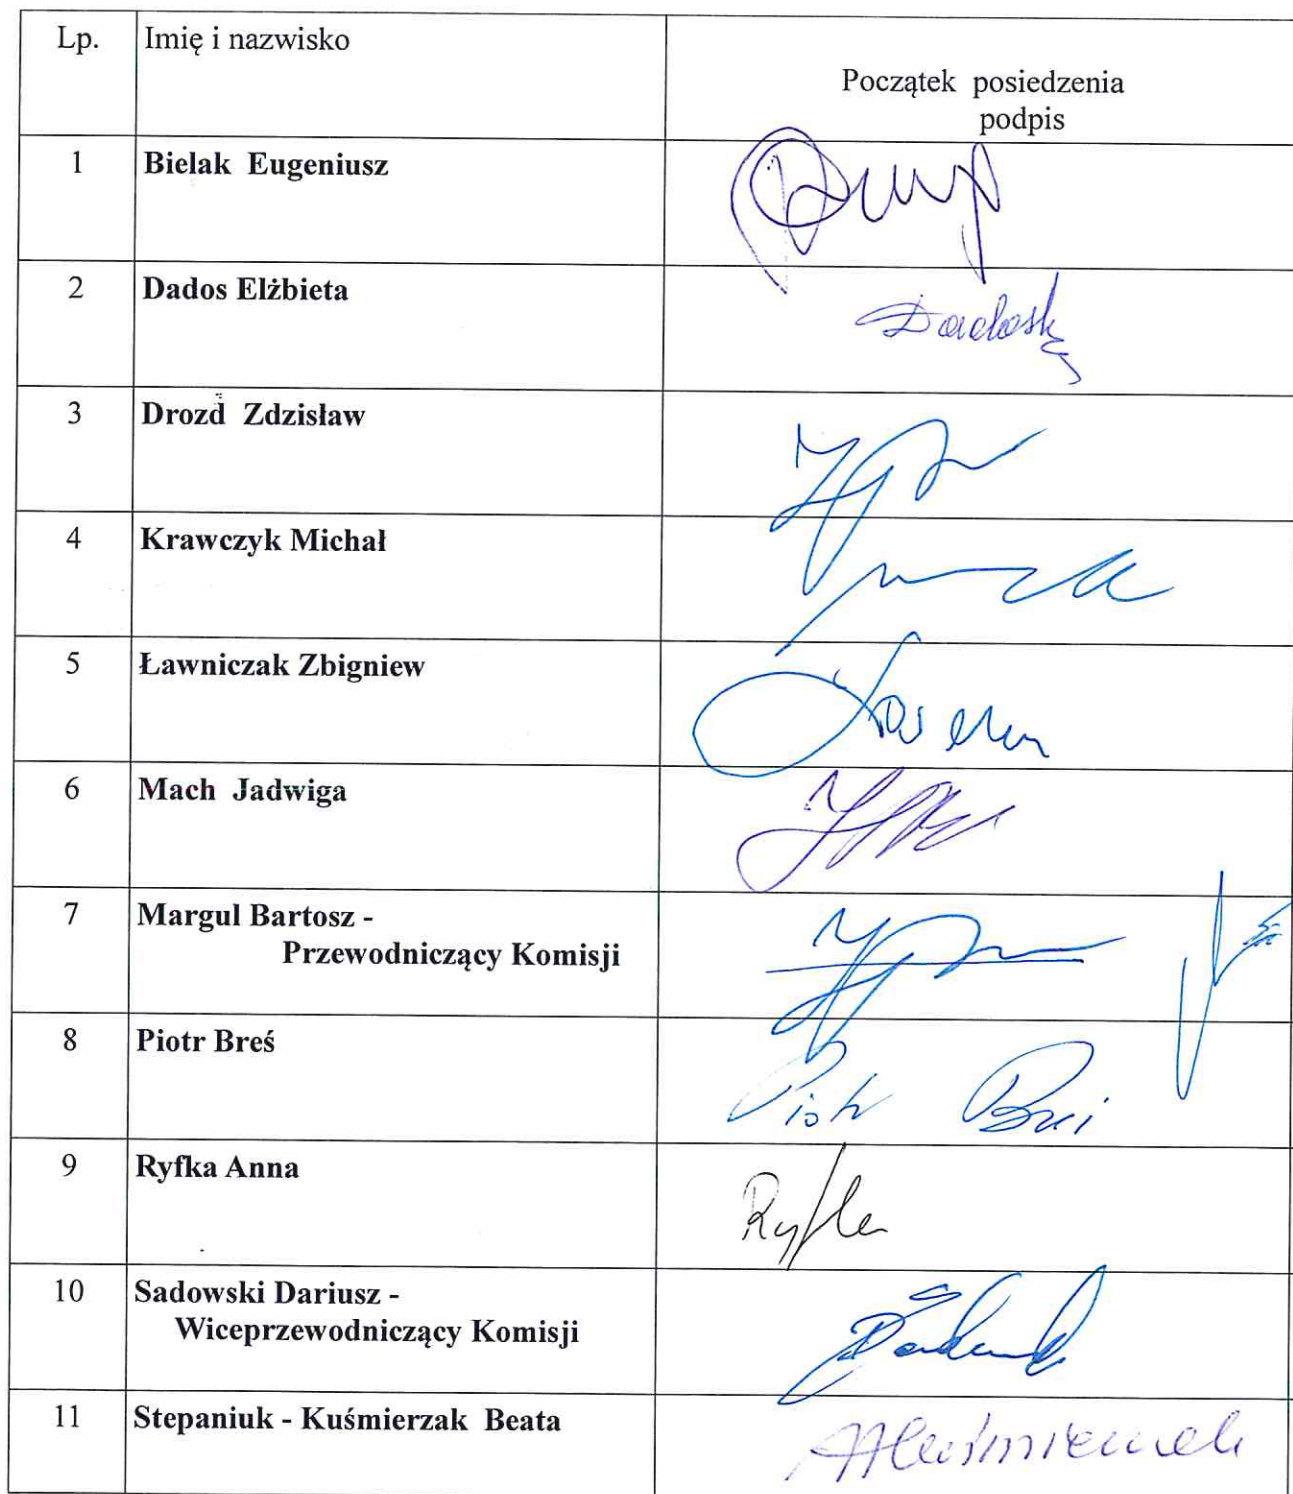 Lp. Imię i nazwisko
Początek posiedzenia
podpis
1 Bielak Eugeniusz
2 Dados Elżbieta
3 Drozd Zdzisław
4 Krawczyk Michał
5 Ławniczak Zbigniew
6 Mach Jadwiga
7 Margul Bartosz -
Przewodniczący Komisji
8 Piotr Breś
Piotr Breś
9 Ryfka Anna
Ryfka
10 Sadowski Dariusz -
Wiceprzewodniczący Komisji
11 Stepaniuk - Kuśmierzak Beata